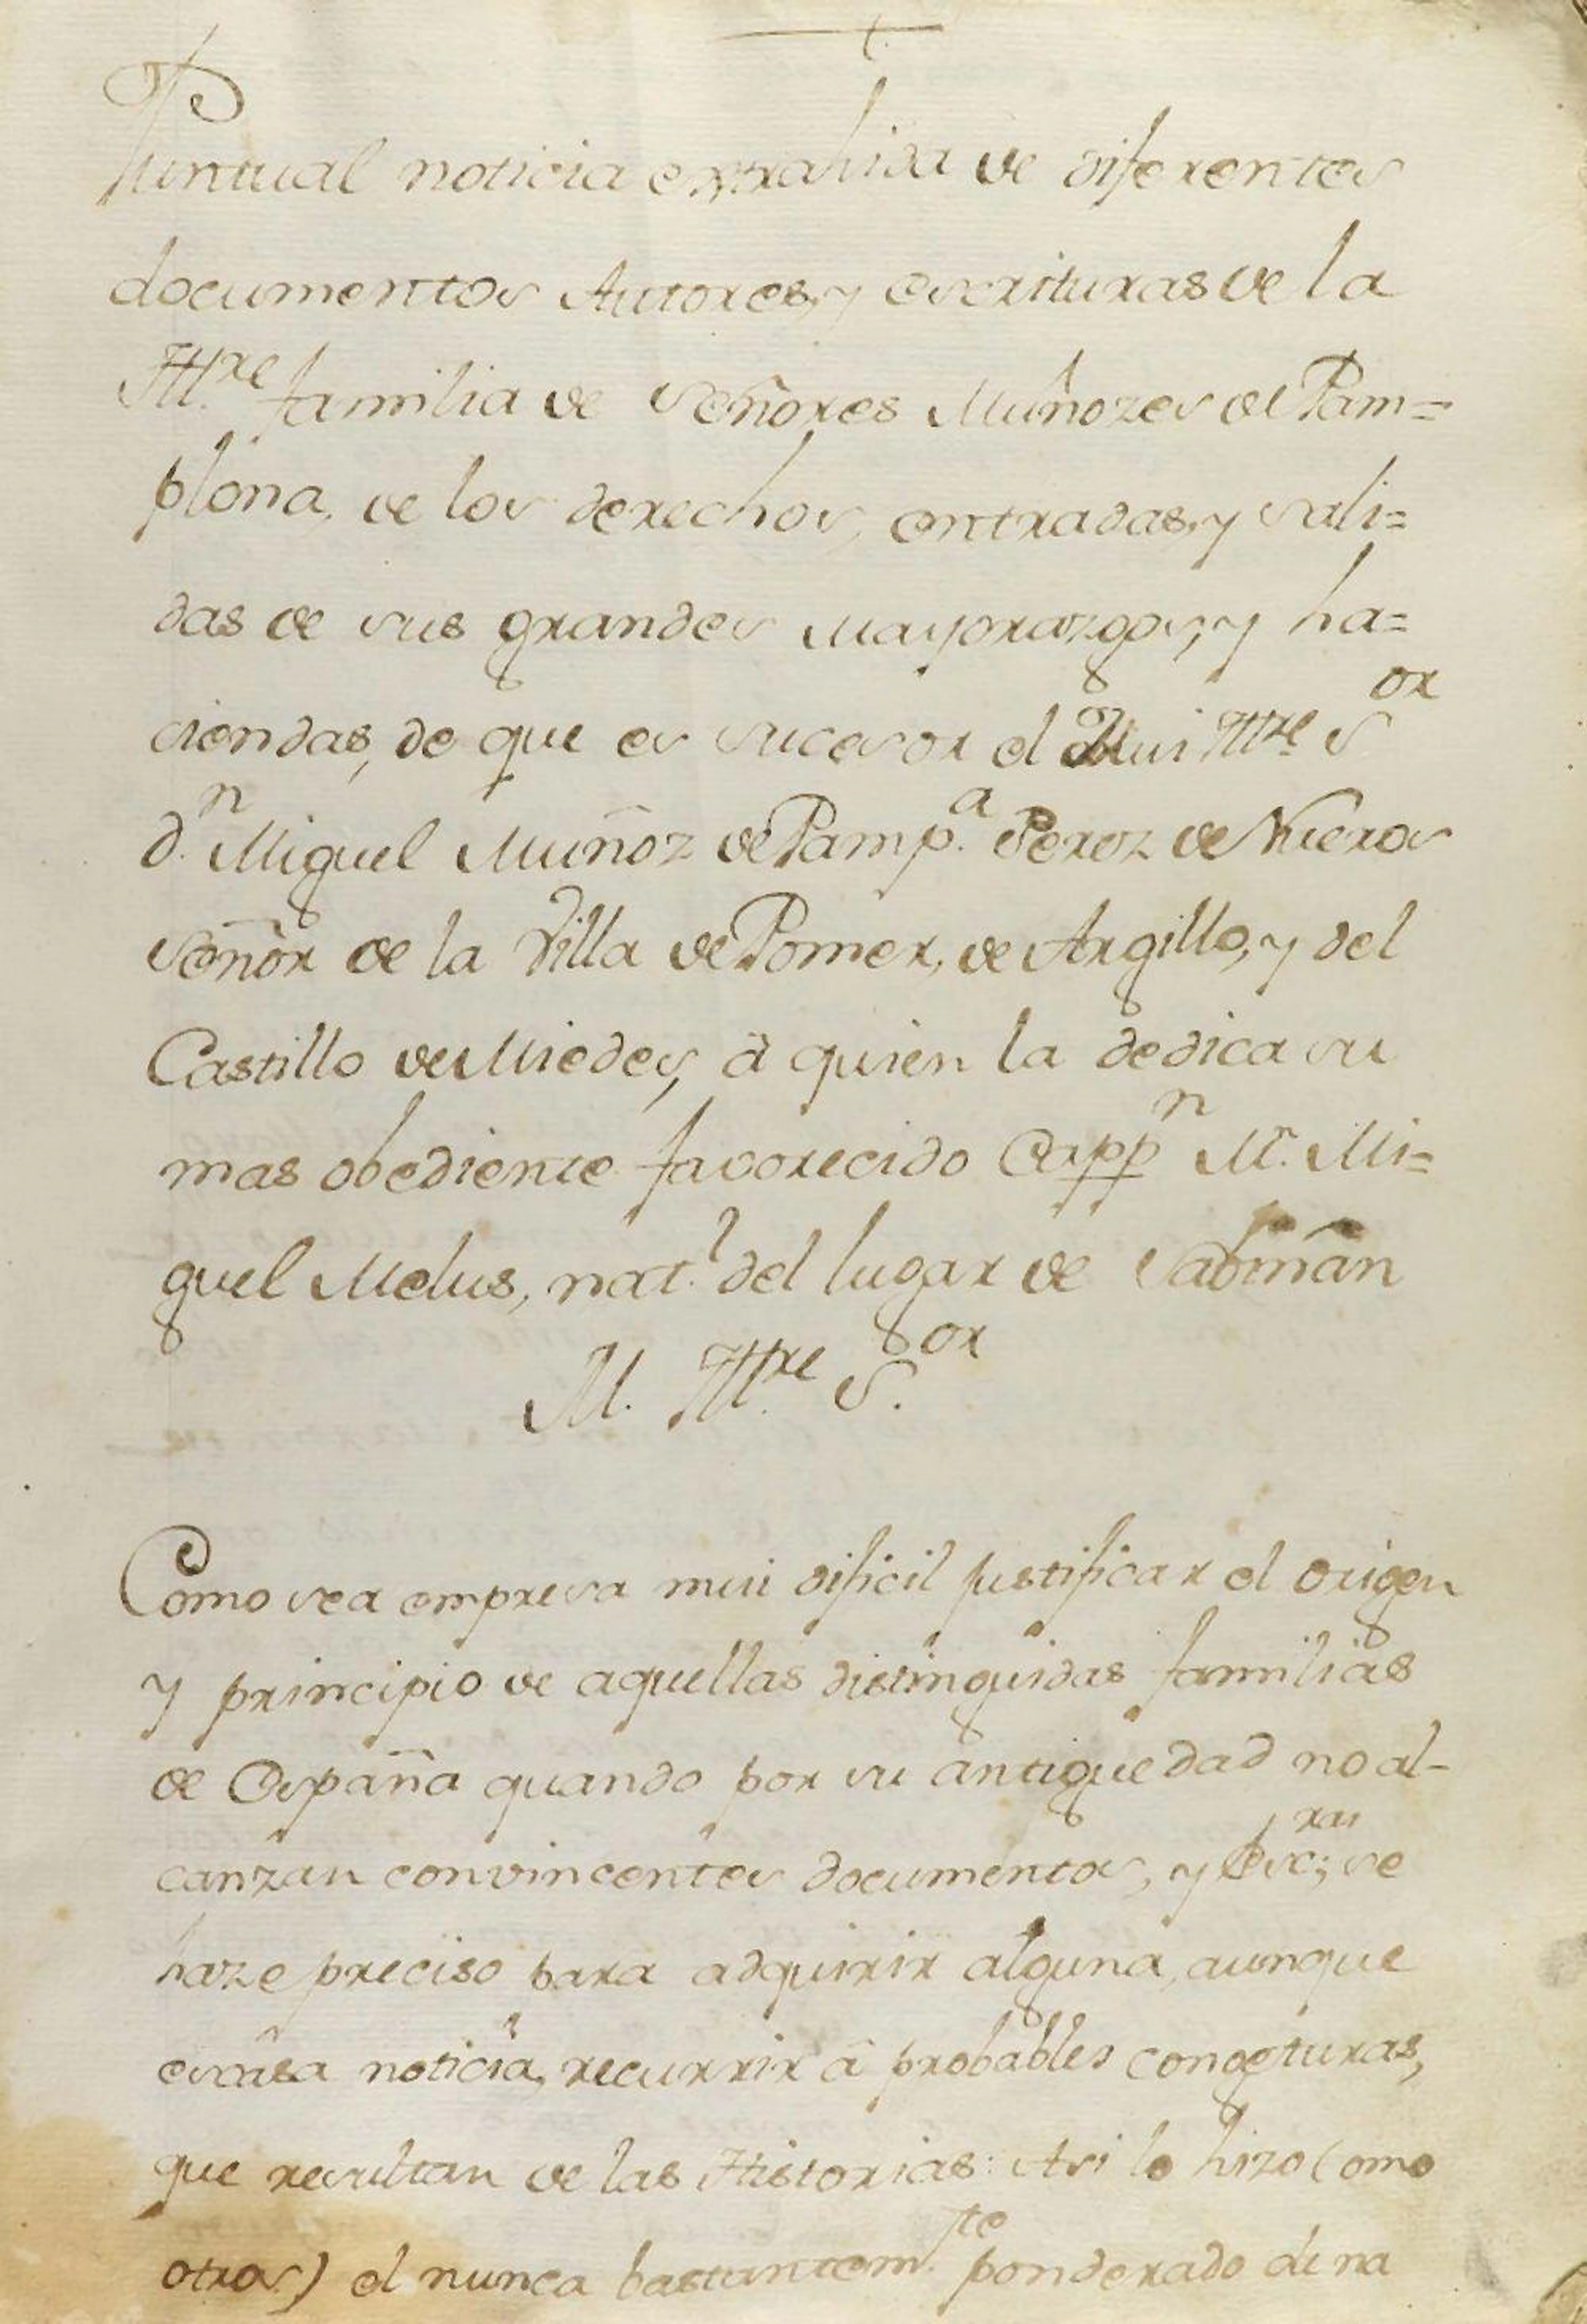 +
Puntual noticia extrahida de diferentes
documentos Autores, y escrituras de la
Ill.re familia de Señores Muñozes de Pam=
plona, de los derechos, entradas, y sali=
das de sus grandes Mayorazgos, y ha=
ciendas, de que es sucesor el Mui Ill.re S.or
d.n Miguel Muñoz de Pamp.a Perez de Nueros
Señor de la Villa de Pomer, de Argillo, y del
Castillo de Miedes, â quien la dedica su
mas obediente favorecido Capp.n M.n Mi=
guel Melus, nat.l del lugar de Sabiñan
M. Ill.re S.or
Como sea empresa mui dificil justificar el origen
y principio de aquellas distinguidas familias
de España quando por su antiguedad no al-
canzan convincentes documentos, y Esc.ras; se
haze preciso para adquirir alguna, aunque
escasa noticia, recurrir â probables congeturas,
que resultan de las Historias: Asi lo hizo (omo
otros) el nunca bastantem.te ponderado